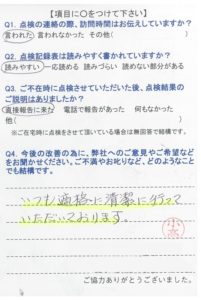 【項目に○をつけて下さい】
Q1. 点検の連絡の際、訪問時間はお伝えしていますか？
言われた 言われなかった その他( )
Q2. 点検記録表は読みやすく書かれていますか？
読みやすい 一応読める 読みづらい 読めない部分がある
Q3. ご不在時に点検させていただいた後、点検結果の
ご説明はありましたか？
直接報告に来た 電話で報告があった 何もなかった
他( )
※ご在宅時に点検をさせて頂いている場合は無回答で結構です。
Q4. 今後の改善の為に、弊社へのご意見やご希望など
をお聞かせください。ご不満やお叱りなど、どのようなこと
でも結構です。
いつも適確に清潔に行って
いただいております。
ご協力ありがとうございました。